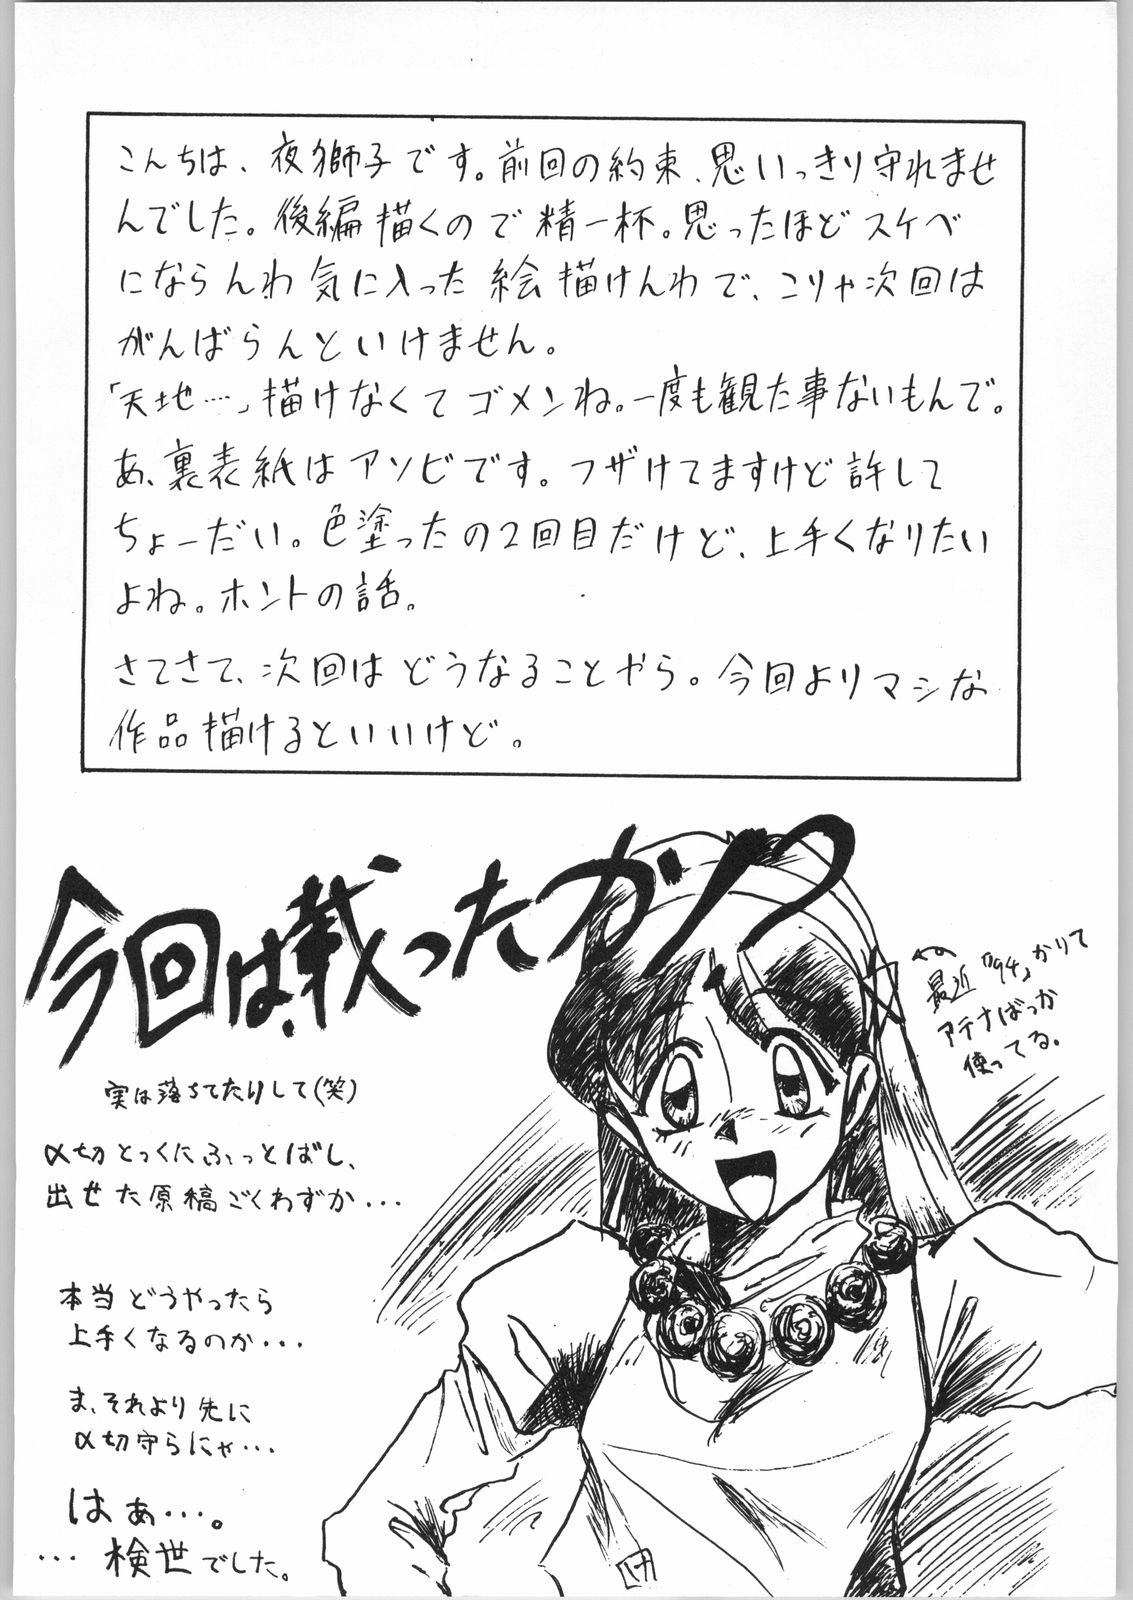 こんちは、夜獅子です。前回の約束、思いっきり守れませ
んでした。後編描くので精一杯。思ったほどスケベ
にならんわ気に入った絵描けんわで、こりゃ次回は
がんばらんといけません。
「天地…」描けなくてゴメンね。一度も観た事ないもんで。
あ、裏表紙はアソビです。フザけてますけど許して
ちょーだい。色塗ったの2回目だけど、上手くなりたい
よね。ホントの話。
さてさて、次回はどうなることやら。今回よりマシな
作品描けるといいけど。
今回は、載ったカソ?
最近「'94」かりて
アテナばっか
使ってる。
実は落ちてたりして(笑)
〆切とっくにふっとばし、
出せた原稿ごくわずか・・・
本当どうやったら
上手くなるのか・・・
ま、それより先に
〆切守らにゃ・・・
はぁ・・・。
・・・検世でした。